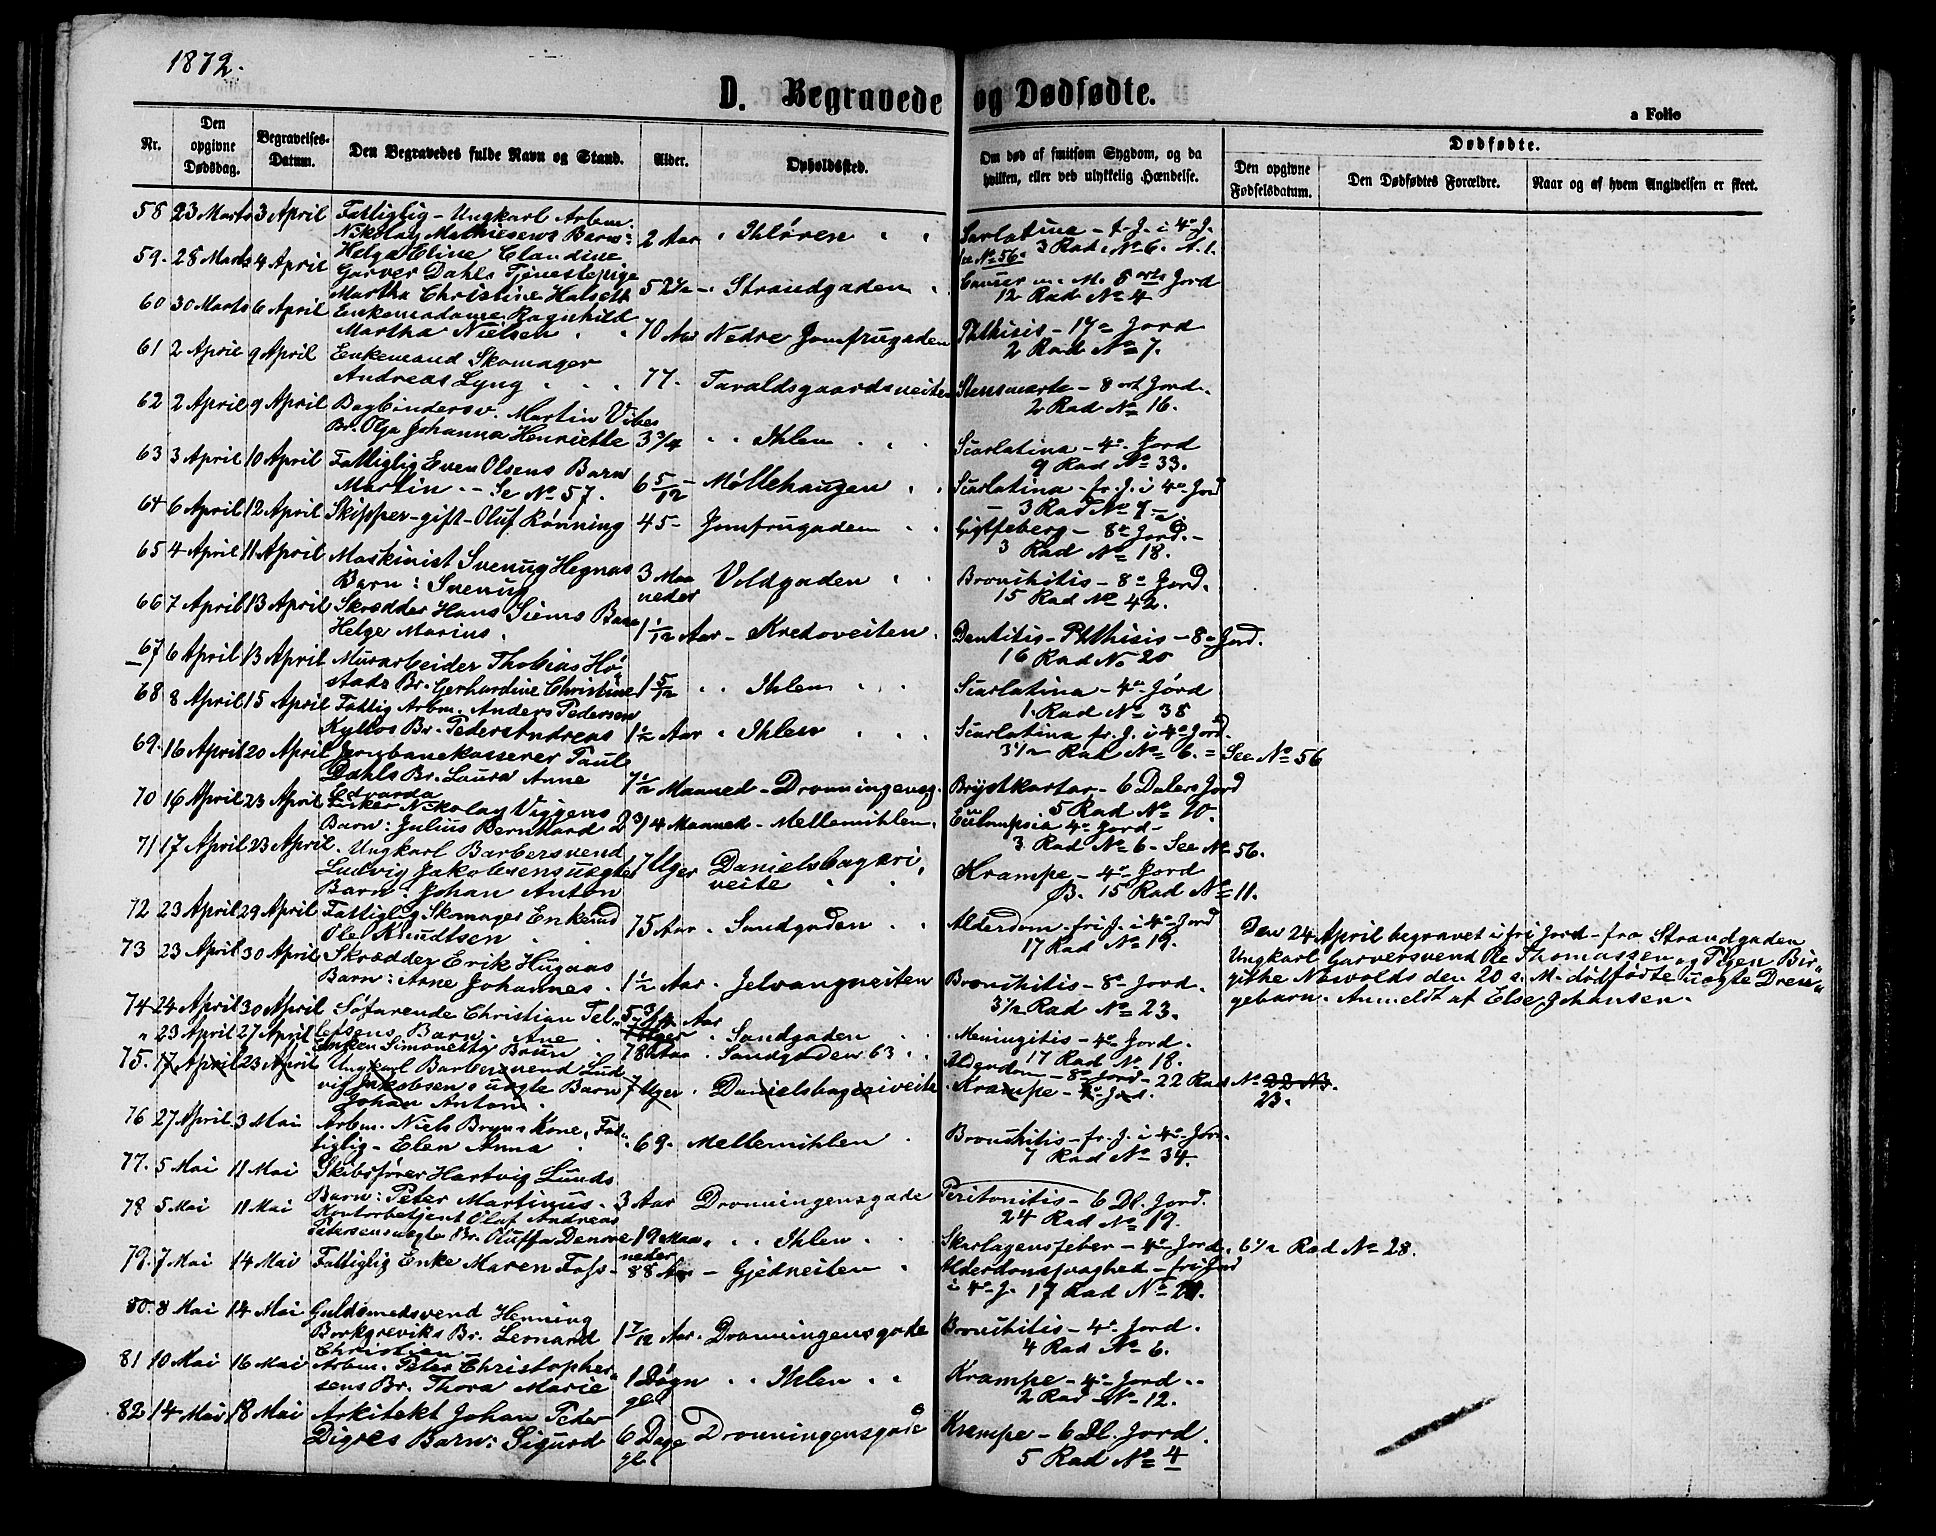 1872.
D. Begravede og Dødfødte.
a Folio
Nr.
Den opgivne Dødsdag.
Begravelses-Datum.
Den Begravedes fulde Navn og Stand.
Alder.
Opholdssted.
Om død af smitsom Sygdom, og da hvilken, eller ved ulykkelig Hændelse.
Dødfødte.
Den opgivne Fødselsdatum.
Den Dødfødtes Forældre.
Naar og af hvem Angivelsen er skeet.
58 23 Marts 3 April Fattiglig - Ungkarl Arbm.
Nikolay Mathiesens Barn: 2 Aar " Ihlören " " Scarlatina - f. J. i 4de J.
Helga Eline Claudine 3 Rad No 6. A. 1.
se No 56.
59. 28 Marts 4 April Garver Dahls Tjenestepige
Martha Christine Halseth 52 1/2 - Strandgaden " Cancer 8 orts Jord
12 Rad No 4
60 30 Marts 6 April Enkemadame Ragnhild
Martha Nielsen 70 Aar Nedre Jomfrugaden Phthisis - Jord
2 Rad No 7.
61 2 April 9 April Enkemand Skomager
Andreas Lyng 77. Taraldsgaardsveiten - 8 ort Jord.
2 Rad No 16.
62 2 April 9 April Bogbindersv. Martin Vibes
Br. Olga Johanna Henriette 3 3/4 " " Ihlen Scarlatina - 4de Jord
9 Rad No 33.
63 3 April 10 April Fattiglig Even Olsens Barn
Martin. - Se No 57. 6 5/12 - Møllehaugen " " Scarlatina - fr. J. i 4de Jord
- 3 Rad No 7 a.
64 6 April 12 April Skipper - gift - Oluf Rønning 45 - Jomfrugaden " - 8de Jord. -
3 Rad No 18.
65 4 April 11 April Maskinist Svenug Hegnas
Barn: Svenug 3 Maaneder Voldgaden " " Bronchitis - 8de Jord.
15 Rad No 42.
66 7 April 13 April Skrædder Hans Siems Barn
Helge Marius. 1 1/12 Aar - Kredoveiten. Dentitis - Phthisis - 8de Jord.
16 Rad No 20
67 6 April 13 April Murarbeider Thobias Hö-
stads Br. Gerhardine Christine 1 5/12 " " Ihlen Scarlatina - 4de Jord
1. Rad No 38
68 8 April 15 April Fattig Arbm. Anders Pedersen
Kyllos Br. Peder Andreas 1 1/2 Aar " Ihlen Scarlatina fr. J. i 4de Jord.
3 1/2 Rad No 6. = See No 56
69. 16 April 20 April Jernbanekasserer Pauls
Dahls Br. Laura Anne
Edvarda 7 1/2 Maaned - Dronningensg. Brystkatar - 6 Dalers Jord
5 Rad No 10.
70 16 April 23 April Enker Nikolay Viggens
Barn: Julius Bernhard 2 3/4 Maaned - Mellemihlen. Eclampsia 4de Jord -
3 Rad No 6 - See No 56.
71 17 April 23 April. Ungkarl Barbersvend
Ludvig Jakobsens uægte 7 Uger Danielsbageri-
Barn: Johan Anton veite Krampe - 4de Jord
B. 15 Rad No 11.
72 23 April 29 April Fattiglig Skomager Enkemd
Ole Knudtsen 75 Aar. Sandgaden " " Alderdom - fri J. i 4de Jord
17 Rad No 19.
73 23 April 30 April Skrædder Erik Hugaas
Barn: Arne Johannes. 1 1/2 Aar. Jelvangveiten Bronchitis - 8de Jord.
3 1/2 Rad No 23.
74 24 April 30 April Søfarende Christian Tel-
lefsens Barn: Ane 5 3/4 Aar Sandgaden Meningitis - 4de Jord.
17 Rad No 18.
" 23 April 27 April Enken Simonette Brun 78 Aar. Sandgaden 63 " Alderdom - 8de Jord - 22 Rad No 22 No.
23.
75. 17 April 23 April Ungkarl Barbersvend Lud
vig Jakobsens uægte Barn
Johan Anton. 7 Uger. Danielsbageriveite. Krampe - 4de Jord.
76 27 April 3 Mai Arbm. Niels Bryns Kone, Fat-
tiglig - Elen Anna " 69. Mellemihlen Bronchitis - fr. J. i 4de Jord.
7 Rad No 34.
77. 5 Mai 11 Mai Skibsfører Hartvig Lunds
Barn: Peter Martinus. 3 Aar Dronningensgade Peritonitis - 6 Dl. Jord.
24 Rad No 19.
78 5 Mai 11 Mai Kontorbetjent Olaf Andreas
Petersens uægte Br. Oluffa Denne 19 Maaneder " " Ihlen Skarlagensfeber - 4de Jord. 6 1/2 Rad No 28.
79. 7 Mai 14 Mai Fattiglig Enke Maren Foss - 88 Aar - Gjetveiten Alderdomssvaghed - fri Jord
i 4de J. 17 Rad No 21.
80. 8 Mai 14 Mai Guldsmedsvend Henning
Borkgreviks Br. Leonard
Christian 1 7/12 Aar. Dronningensgade Bronchitis - 4de Jord.
4 Rad No 6.
81 10 Mai 16 Mai Arbm. Peter Christopher-
sens Br. Thora Marie 1 Døgn gl. " " Ihlen " " Krampe - 4de Jord "
2 Rad - No 12.
82 14 Mai 18 Mai Arkitekt Johan Peder
Digres Barn: Sigurd 6 Dage gl. Dronningensgade Krampe - 6 Dl. Jord.
5 Rad No 4
Den 24 April begravet i fri Jord - fra Strandgaden
Ungkarl Garversvend Ole Thomassen og Pigen Bir-
githe Norvolds den 20 s. M. dødfødte uægte Dren-
gebarn. Anmeldt af Else Johansen.